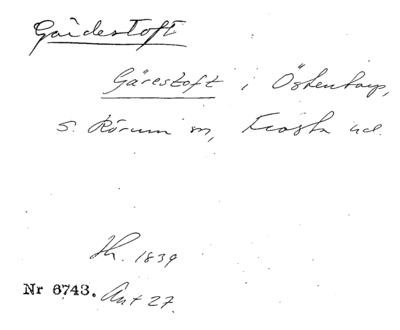 Gårdestoft
Gårestoft i Östentorp,
S. Rörum sn, Frosta hd.
1839
Nr 6743. Ant 27.